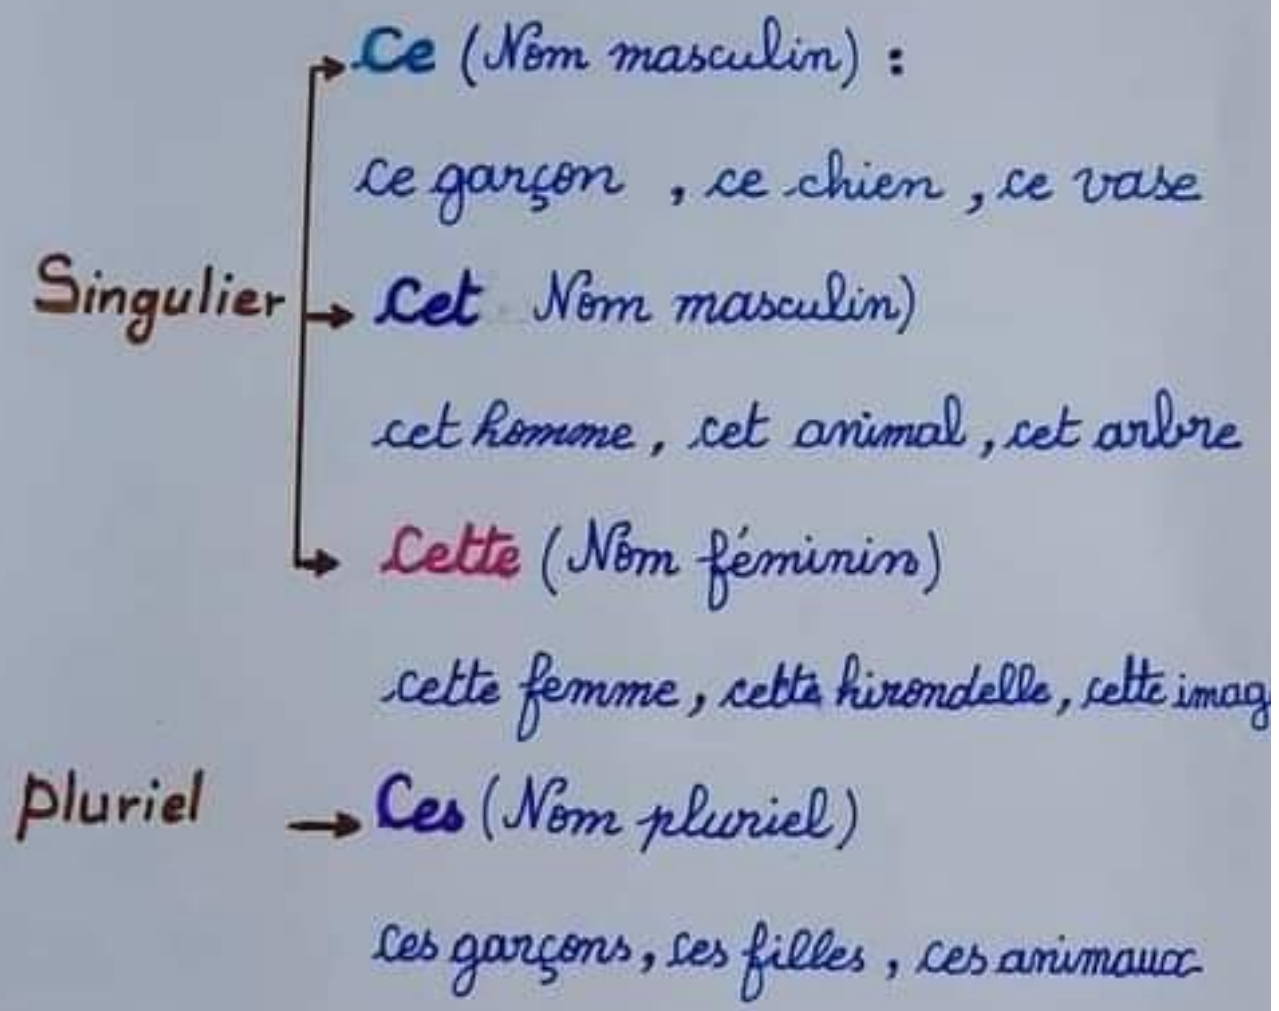 Ce (Nom masculin) :
ce garçon , ce chien , ce vase
Singulier
Cet Nom masculin)
cet homme , cet animal , cet arbre
Cette (Nom féminin)
cette femme , cette hirondelle , cette imag
pluriel
Ces (Nom pluriel)
ces garçons , ces filles , ces animaux